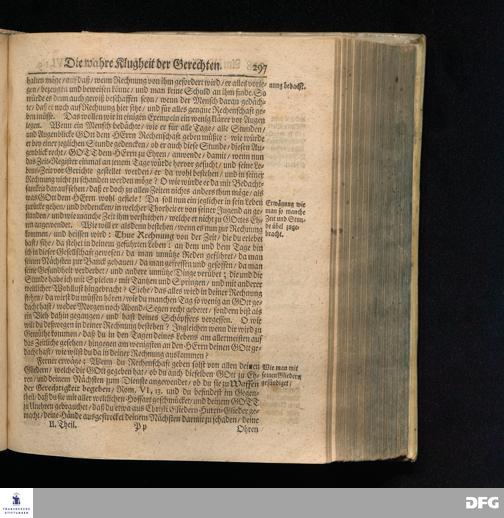 Die wahre Klugheit der Gerechten. 297
halten möge, auf daß, wenn Rechnung von ihm gefordert wird, er alles vorle-
gen, bezeugen und beweisen könne, und man keine Schuld an ihm finde. So
würde es denn auch gewiß beschaffen seyn, wenn der Mensch daran gedäch-
te, daß er auch auf Rechnung hier sitze, und für alles genaue Rechenschaft ge-
ben müsse. Das wollen wir in einigen Exempeln ein wenig klärer vor Augen
legen. Wenn ein Mensch bedächte, wie er für alle Tage, alle Stunden,
und Augenblicke GOtt dem HErrn Rechenschaft geben müßte: wie würde
er bey einer jeglichen Stunde gedencken, ob er auch diese Stunde, diesen Au-
genblick recht, GOTT dem HErrn zu Ehren, anwende, damit, wenn nun
das Zeit-Register einmal an jenem Tage würde hervor gesucht, und seine Le-
bens-Zeit vor Gerichte gestellet werden, er da wohl bestehen, und in seiner
Rechnung nicht zu schanden werden möge? O wie würde er da mit Bedacht-
samkeit darauf sehen, daß er doch zu allen Zeiten nichts anders thun möge, als
was GOtt dem HErrn wohl gefiele! Da soll nun ein jeglicher in sein Leben
zurücke gehen, und bedencken, in welcher Thorheit er von seiner Jugend an ge-
standen, und wie manche Zeit ihm verstrichen, welche er nicht zu GOttes Eh-
ren angewendet. Wie will er alsdenn bestehen, wenn es nun zur Rechnung
kommen, und heissen wird: Thue Rechnung von der Zeit, die du erlebet
hast, siehe, da stehet in deinem geführten Leben: an dem und dem Tage bin
ich in dieser Gesellschaft gewesen, da man unnütze Reden geführet, da man
seinen Nächsten zur Banck gehauen, da man gefressen und gesoffen, da man
seine Gesundheit verderbet, und andere unnütze Dinge verübet; die und die
Stunde habe ich mit Spielen, mit Tantzen und Springen, und mit anderer
weltlicher Wohllust hingebracht? Siehe, das alles wird in deiner Rechnung
stehen, da wirst du müssen hören, wie du manchen Tag so wenig an GOtt ge-
dacht hast, weder Morgen noch Abend-Segen recht gebetet, sondern bist als
ein Vieh dahin gegangen, und hast deines Schöpfers vergessen. O wie
wilt du deswegen in deiner Rechnung bestehen? Ingleichen wenn dir wird zu
Gemüthe kommen, daß du in den Tagen deines Lebens am allermeisten auf
das Zeitliche gesehen, hingegen am wenigsten an den HErrn deinen GOtt ge-
dacht hast, wie wilst du da in deiner Rechnung auskommen?
Ferner erwäge: Wenn du Rechenschaft geben solst von allen deinen
Gliedern, welche dir GOtt gegeben hat, ob du auch dieselben GOtt zu Eh-
ren, und deinem Nächsten zum Dienste angewendet, ob du sie zu Waffen
der Gerechtigkeit begeben, Röm. VI, 13. und du befindest im Gegen-
theil, daß du sie mit aller weltlichen Hoffart geschmücket, und deinem GOTT
zu Unehren gebrauchet, daß du etwa aus Christi Gliedern Huren-Glieder ge-
macht, deine Hände ausgestrecket deinem Nächsten damit zu schaden, deine
II. Theil. P p Ohren
nung bedacht.
Erwägung wie
man so manche
Zeit und Stun-
de übel zuge-
bracht.
Wie man mit
seinen Gliedern
gesündiget,
FRANCKESCHE
STIFTUNGEN
DFG